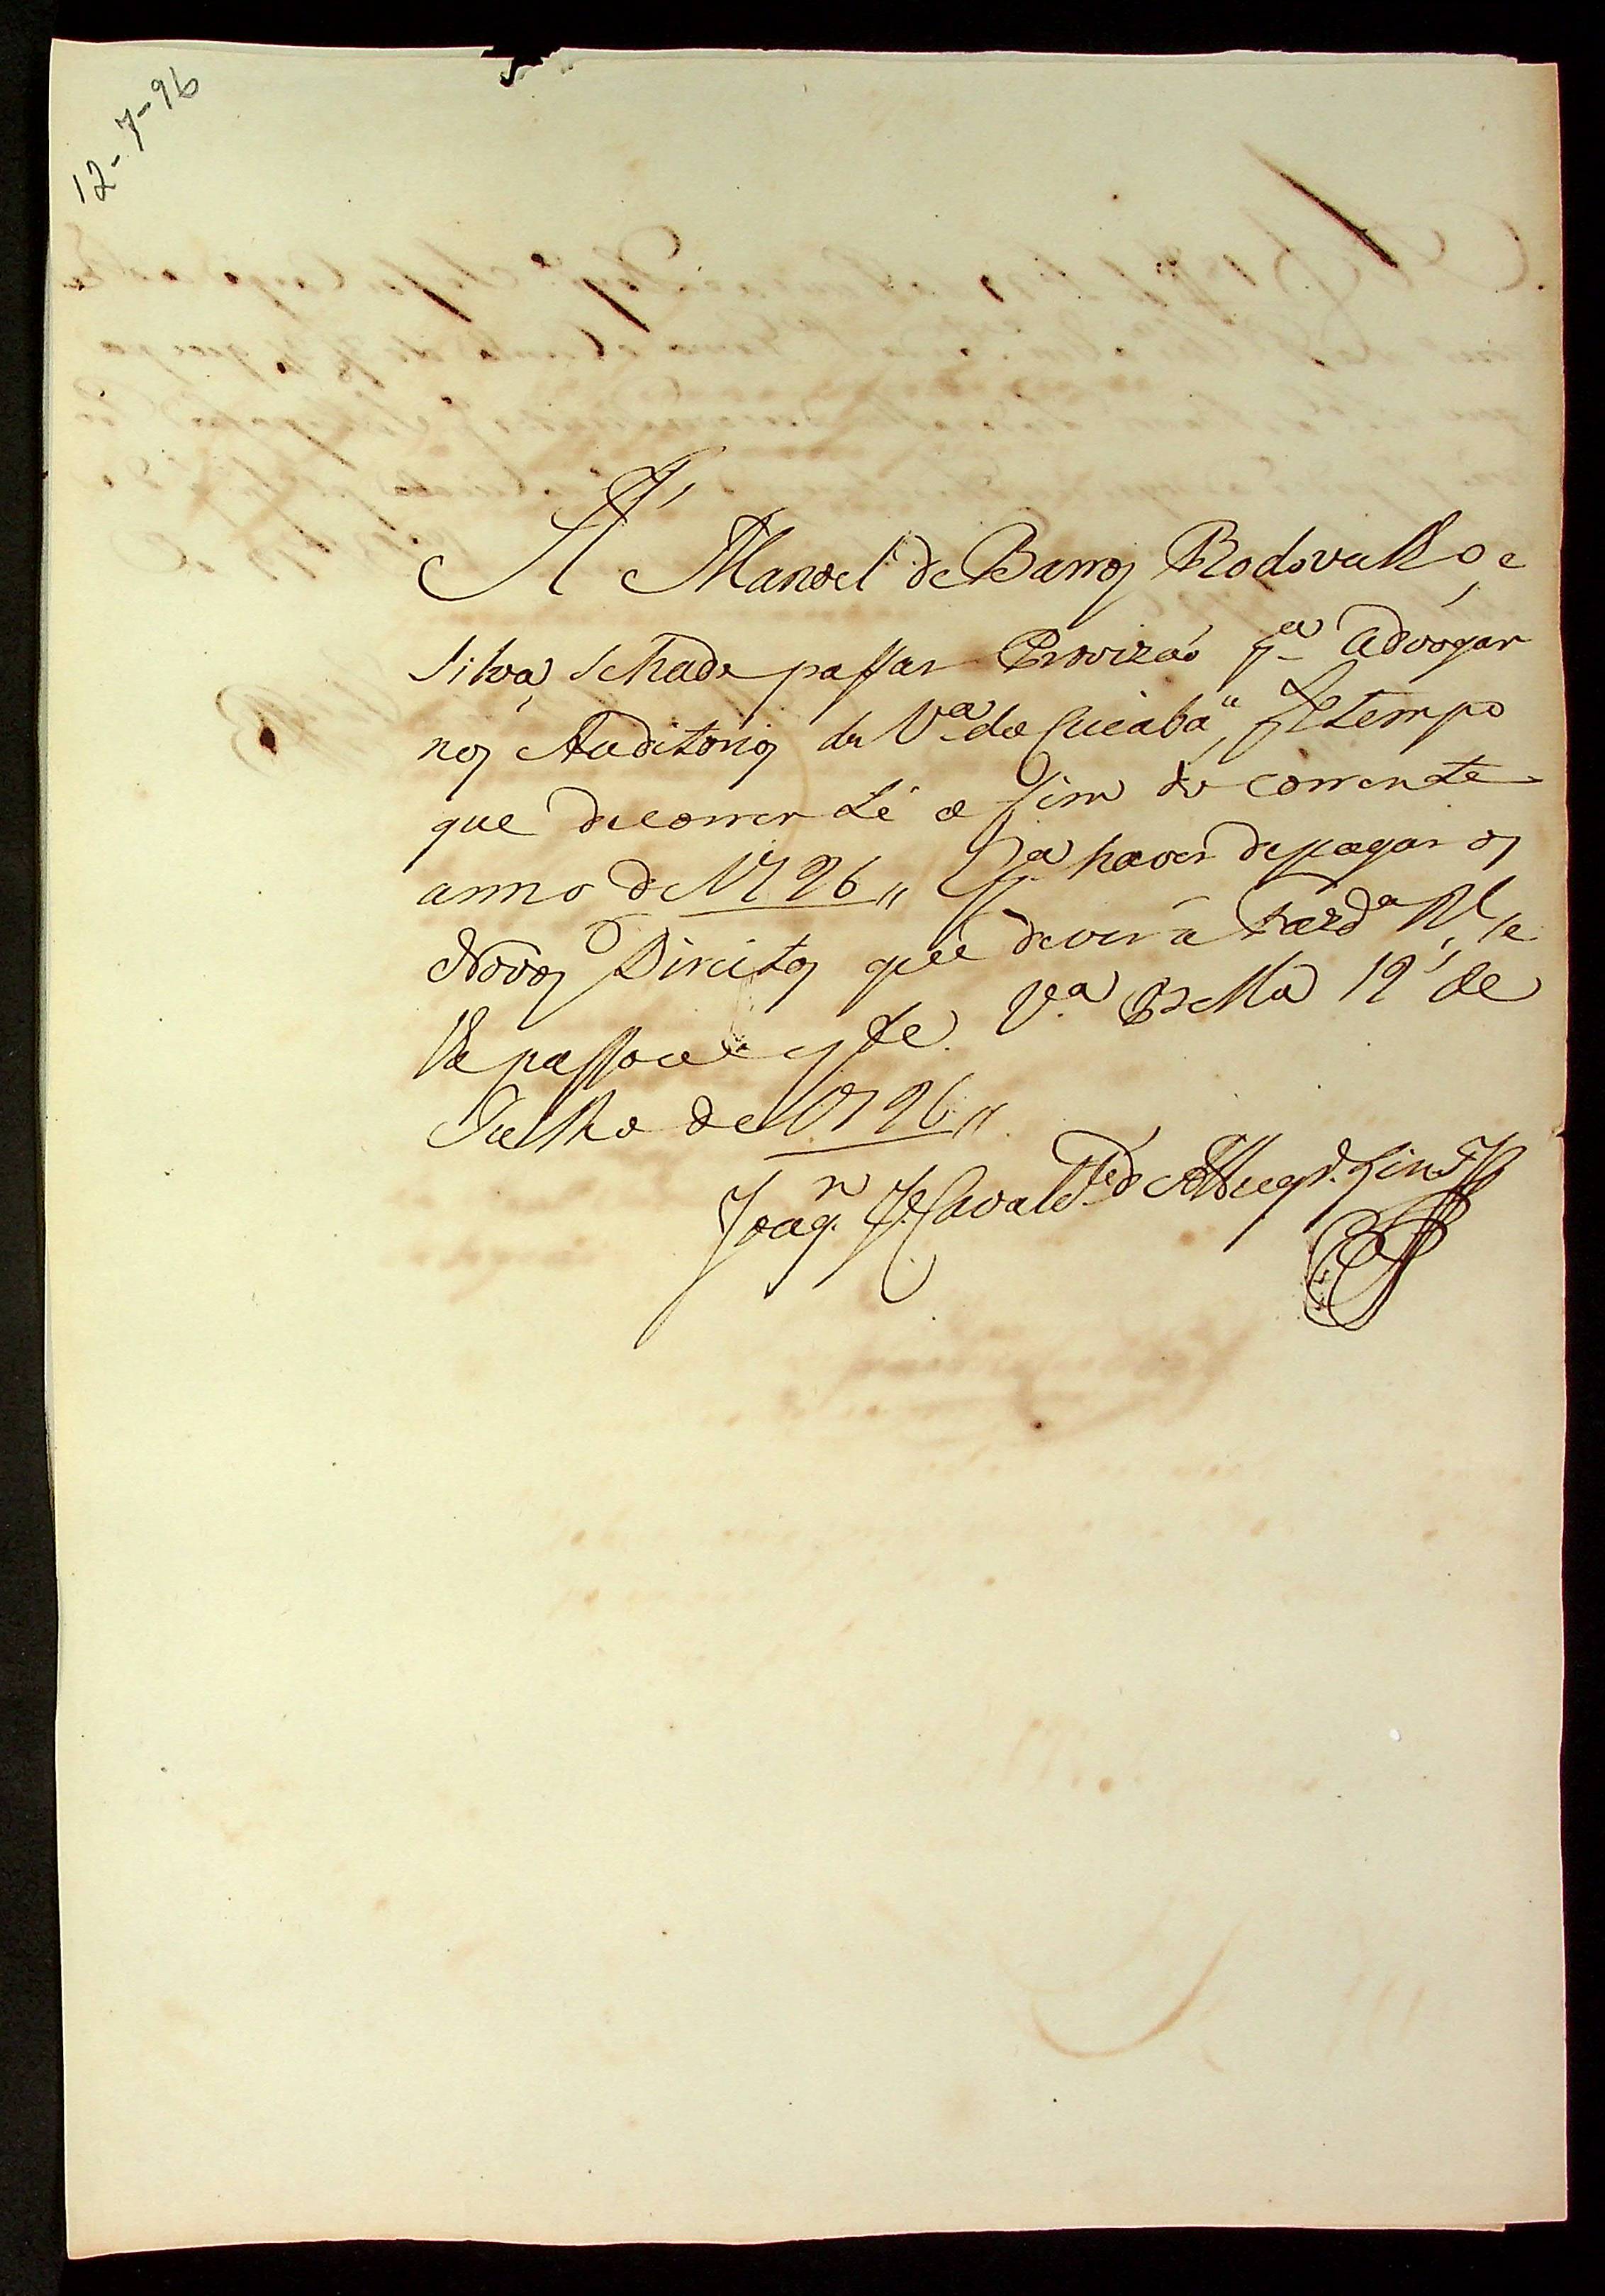 12-7-96
A Manoel de Barros Rodovalho e
Silva, Sehade passar Provizaó pa advogar
nos Auditorios da Va do Cuiabá, tempo
que decorrer té o fim do corrente
anno de 1796,, Pa haver de pagar os
Novos Direitos que dever a Fazda Rl, se
lhe passou esta. Va Bella 12 de
Julho de 1796,,
Joaqm Je Cavalcte de Albuqe. Lins